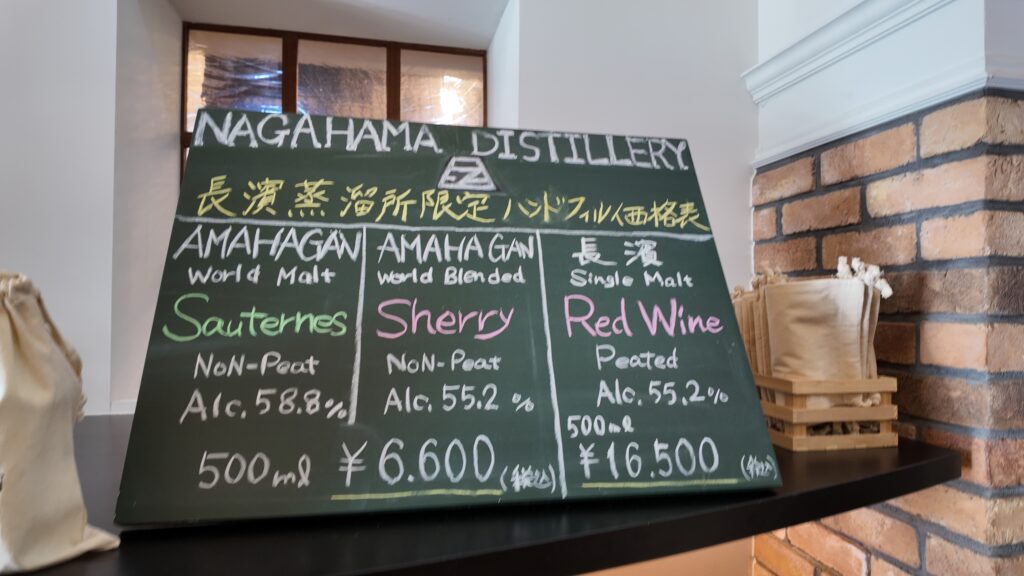 NAGAHAMA DISTILLERY
長濱蒸溜所限定 ハンドフィル価格表
AMAHAGAN
World Malt
Sauternes
NoN-Peat
Alc. 58.8%
AMAHAGAN
World Blended
Sherry
NoN-Peat
Alc. 55.2%
500ml ¥6.600 (税込)
長濱
Single Malt
Red Wine
Peated
Alc. 55.2%
500ml
¥16.500 (税込)